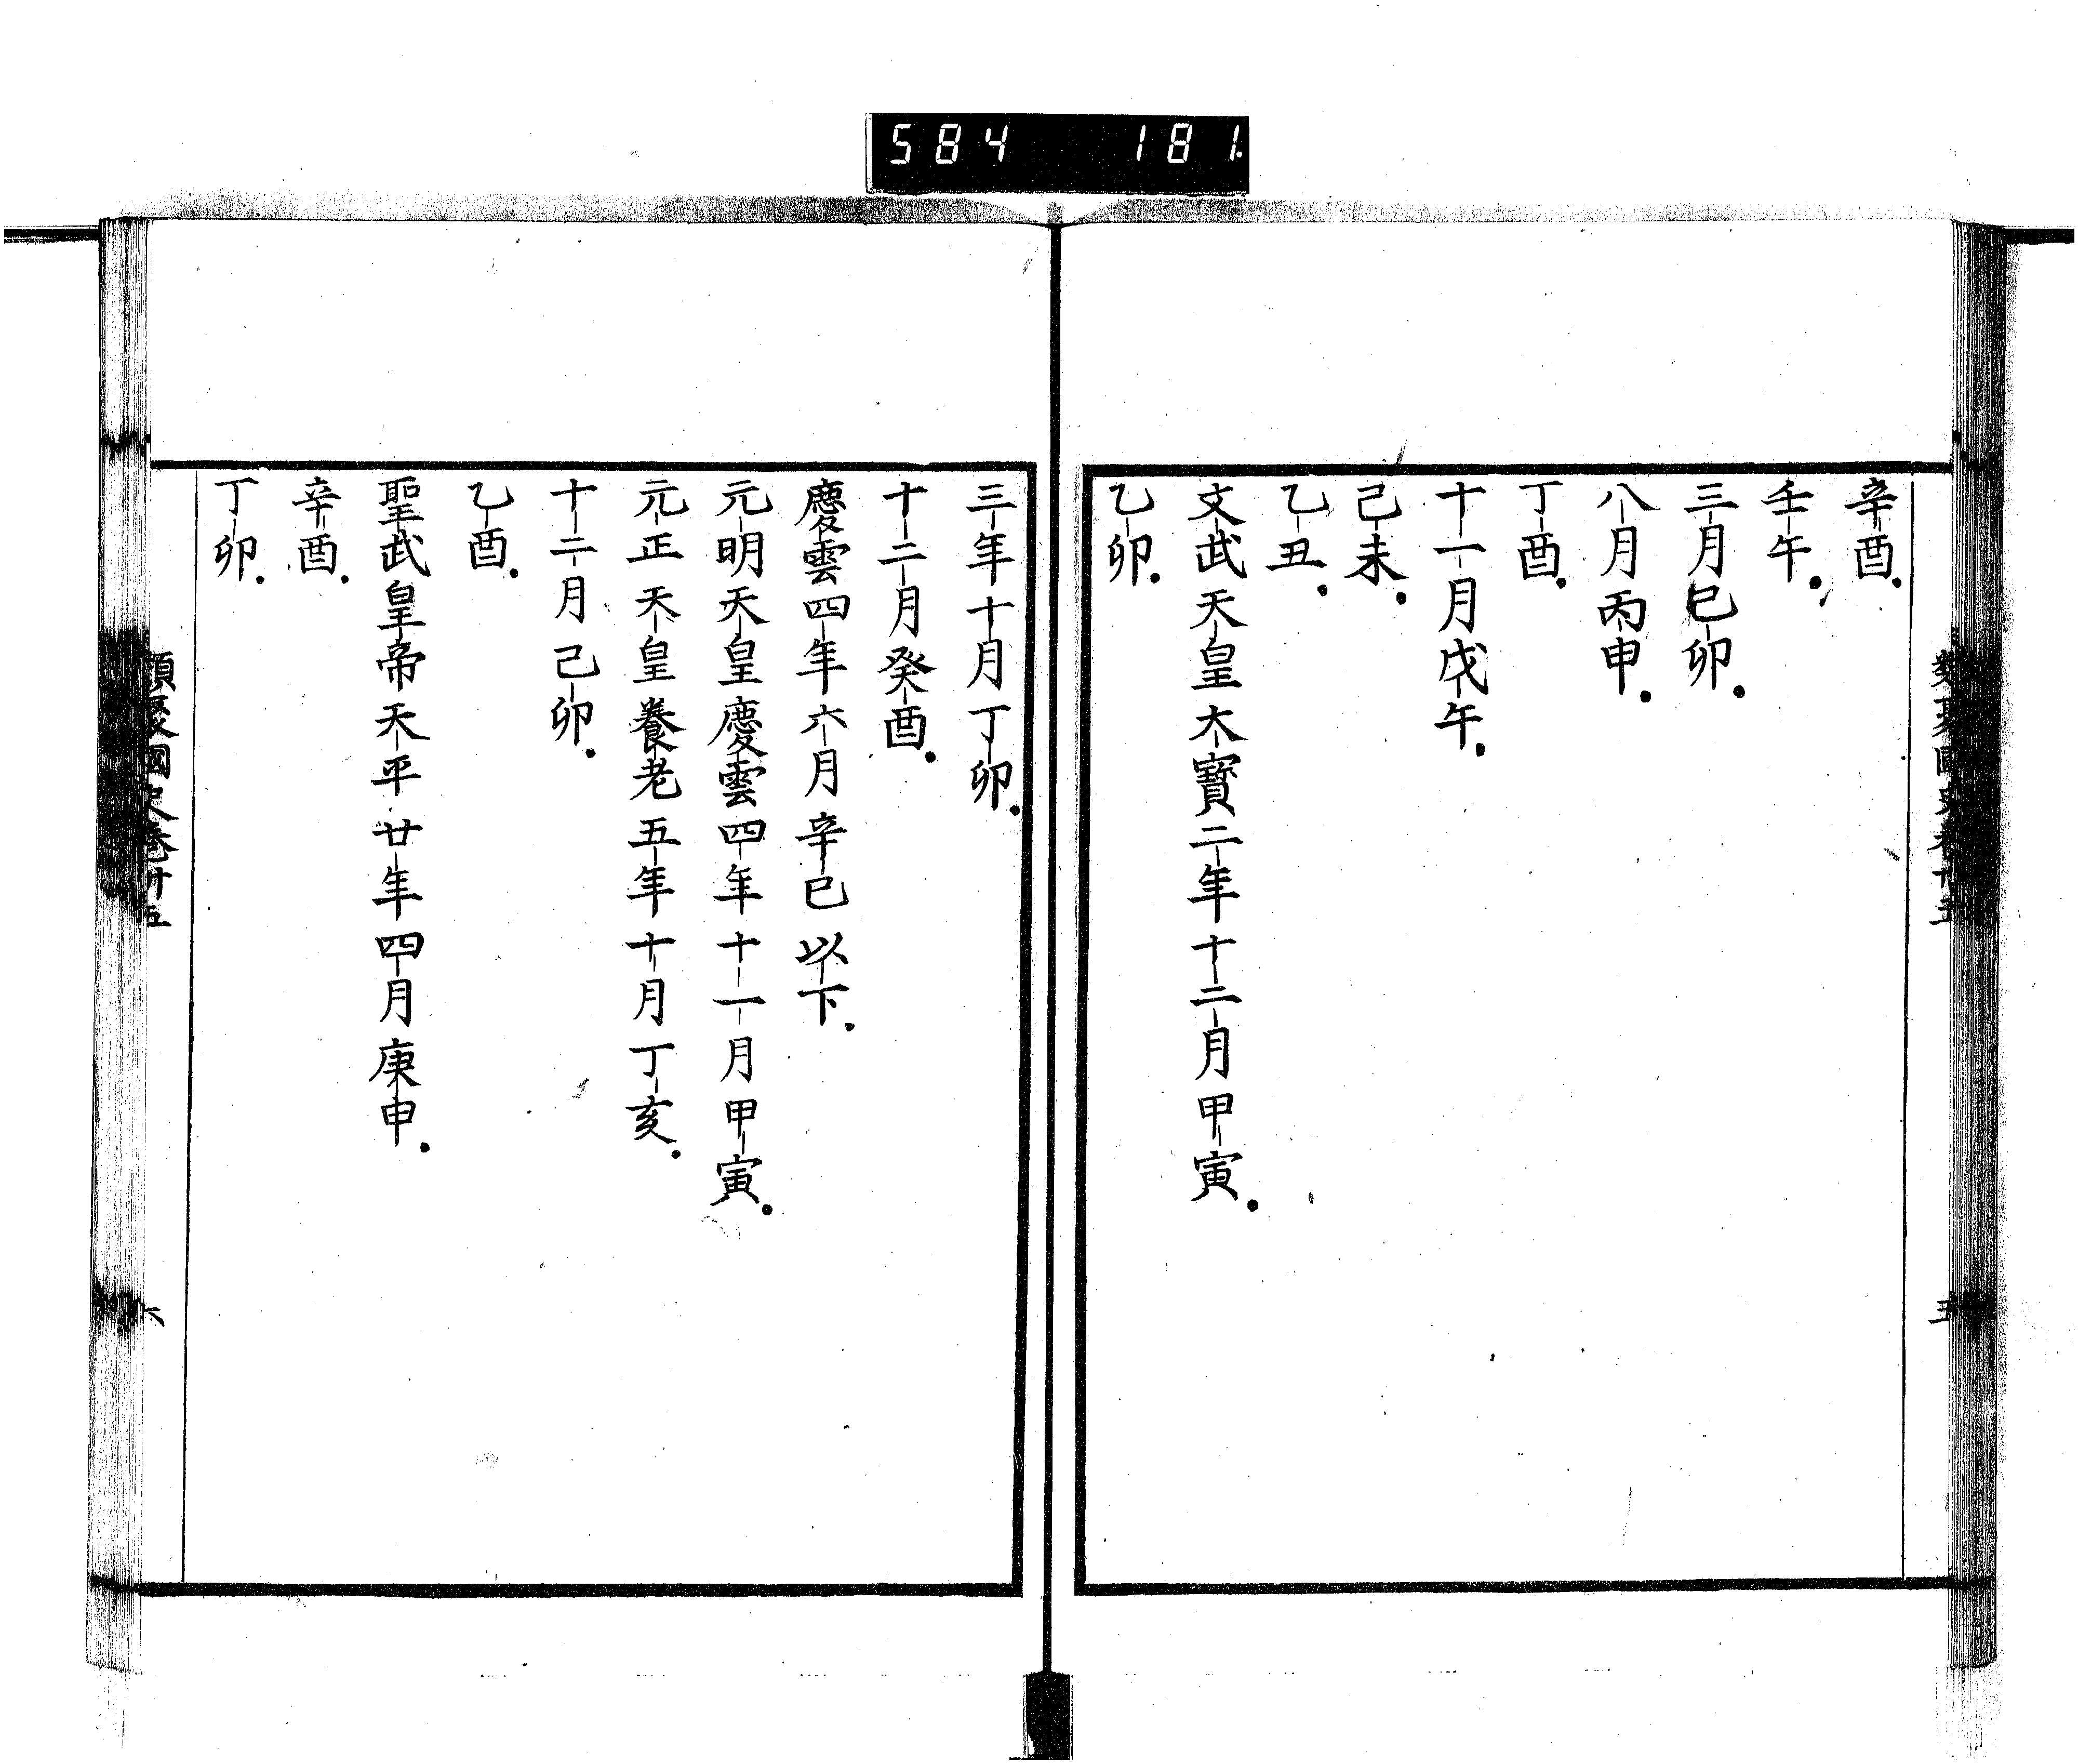 584 181.
類聚國史卷卅五
五
辛酉.
壬午.
三月己卯.
八月丙申.
丁酉.
十一月戊午.
己未.
乙丑.
文武天皇大寶二年十二月甲寅.
乙卯.
三年十月丁卯.
十二月癸酉.
慶雲四年六月辛巳以下.
元明天皇慶雲四年十一月甲寅.
元正天皇養老五年十月丁亥.
十二月己卯.
乙酉.
聖武皇帝天平廿年四月庚申.
辛酉.
丁卯.
類聚國史卷卅五
六